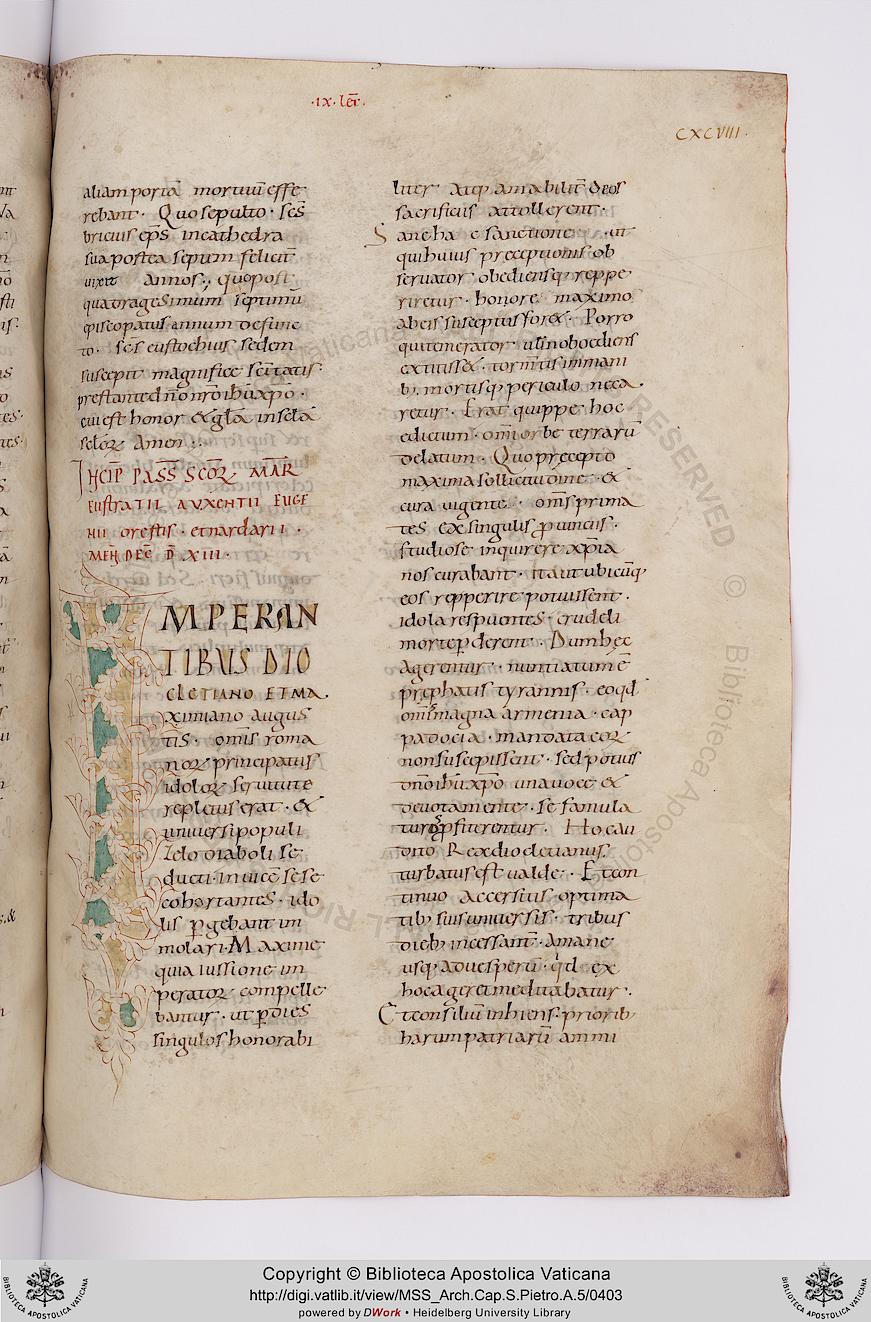 ·IX· lec̄·
CXCVIII·
aliam portā mortuū effe
rebant· Quo sepulto· sc̄s
bricius ep̄s in cathedra
sua postea septem felicit̄
uixit annos·, quo post
quadragesimum septimū
episcopatus annum defunc
to· sc̄s eustochius sedem
suscepit magnifice sc̄itatis·
prestante dn̄o nr̄o ih̄u xp̄o·
cui est honor & gl̄a in sc̄la
sc̄lor̄· Amen·,
INCIP̄ PASS̄ SCOR̄ MAR̄
EUSTRATII AVXENTII EUGE
NII orestis· et nardarii·
MEN̄ DEC̄ D̄ XIII·
IMPERAN
TIBUS DIO
CLETIANO ET MA·
ximiano augus
tis· om̄is roma
nor̄ principatus
idolor̄ seruitute
repletus erat· &
uniuersi populi
zelo diaboli se
ducti· inuicē sese
cohortantes· ido
lis p̄gebant im
molari· Maxime
quia iussione im
perator̄ compelle
bantur· ut p̄ dies
singulos honorabi
liter atq; amabilit̄ deos
sacrificiis attollerent·
Sane hac sanctione· ut
quibuius preceptionis ob
seruator obediensq; reppe
riretur· honore maximo
ab eis susceptus foret· Porro
qui temerator ul̄ inoboediens
extitisset· torm̄tis immani
b; mortisq; periculo neca·
retur· Erat quippe hoc
edictum· om̄i orbe terrarū
delatum· Quo precepto
maxima sollicitudine· &
cura uigente· om̄s prima
tes ex singulis p̄uinciis·
studiose inquirere xp̄ia
nos curabant· ita ut ubicūq;
eos repperire potuissent·
idola respuentes· crudeli
morte p̄derent· Dum hec
agerentur· nuntiatum ē
prephatis tyrannis· eo qd̄
om̄is magna armenia· cap
padocia· mandata eor̄
non suscepissent· sed potius
dn̄o ih̄u xp̄o una uoce &
deuota mente· se famula
turos p̄fiterentur· Hoc au
dito Rex diocletianus·
turbatus est ualde· Et con
tinuo accersitus optima
tib; suis uniuersis· tribus
dieb; incessant̄· a mane
usq; ad uesperū· qd̄ ex
hoc ageret meditabatur·
Et consiliū inhiens· priorib;
harum patriarū ammi
Copyright © Biblioteca Apostolica Vaticana
http://digi.vatlib.it/view/MSS_Arch.Cap.S.Pietro.A.5/0403
powered by DWork • Heidelberg University Library